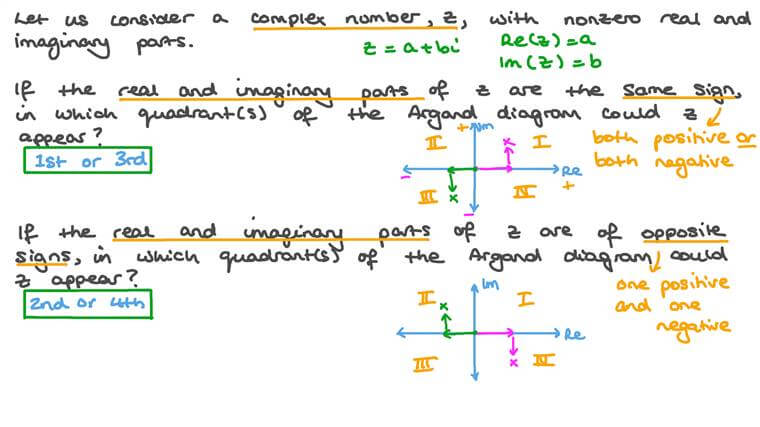 Let us consider a complex number, z, with nonzero real and
imaginary parts.
z = a + bi
Re(z) = a
Im(z) = b
If the real and imaginary parts of z are the same sign,
in which quadrant(s) of the Argand diagram could z
appear?
1st or 3rd
II
+
Im
x
I
Re
+
-
III
x
IV
-
both positive or
both negative
If the real and imaginary parts of z are of opposite
signs, in which quadrant(s) of the Argand diagram could
z appear?
2nd or 4th
II
x
Im
I
Re
III
x
IV
one positive
and one
negative